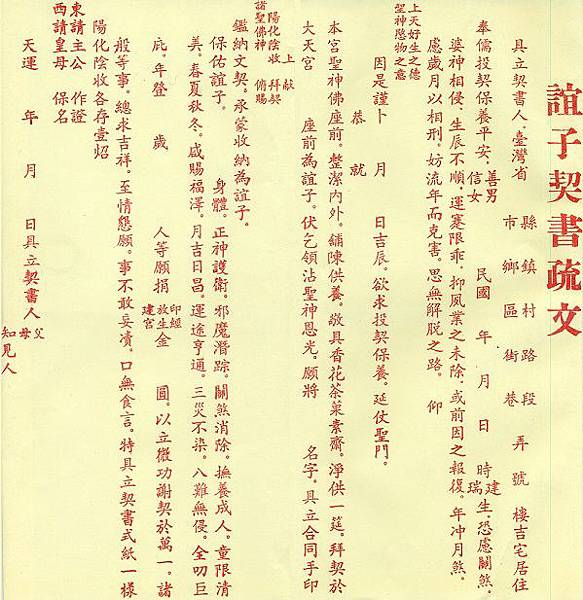 誼子契書疏文
具立契書人.臺灣省 縣市 鎮鄉 村區 路街 段巷 弄 號 樓吉宅居住
奉儒投契保養平安.善男信女 民國 年 月 日 時建瑞生.恐慮關煞.
婆神相侵.生辰不順.運蹇限乖.抑夙業之未除.或前因之報復.年冲月煞.
慮歲月以相刑.妨流年而克害.思無解脫之路. 仰
上天好生之德
望神愍物之意
因是謹卜 月 日吉辰.欲求投契保養.延仗聖門.
恭 就
本宮聖神佛座前.整潔內外.鋪陳供養.敬具香花茶菓素齋.淨供一筵.拜契於
大天宮 座前為誼子.伏乞領沾聖神恩光.願將 名字.具立合同手印
上 献
陽化陰收 拜契
諸聖佛神 俯賜
鑑納文契.承蒙收納為誼子.
保佑誼子. 身體.正神護衛.邪魔潛踪.關煞消除.撫養成人.童限清
美.春夏秋冬.咸賜福澤.月吉日昌.運途亨通.三災不染.八難無侵.全叨巨
庇.年登 歲 人等願捐 印經放生建宮 金 圓.以立微功謝契於萬一.諸
般等事.總求吉祥.至情懇願.事不敢妄凟.口無食言.特具立契書式紙一樣
陽化陰收各存壹炤
東請主公 作證
西請皇母 保名
天運 年 月 日具立契書人
父母
知見人